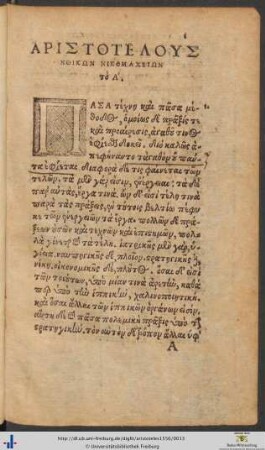 ΑΡΙΣΤΟΤΕΛΟΥΣ
ΗΘΙΚΩΝ ΝΙΚΟΜΑΧΕΙΩΝ
τὸ Α.
ΠΑΣΑ τέχνη καὶ πᾶσα μέ-
θοδος, ὁμοίως δὲ πρᾶξίς τε
καὶ προαίρεσις, ἀγαθοῦ τινος
ἐφίεσθαι δοκεῖ. διὸ καλῶς ἀ-
πεφήναντο τἀγαθὸν οὗ πάν-
τα ἐφίεται. διαφορὰ δέ τις φαίνεται τῶν
τελῶν. τὰ μὲν γάρ εἰσιν, ἐνέργειαι· τὰ δὲ
παρ' αὐτὰς, ἔργα τινά. ὧν δ' εἰσὶ τέλη τινὰ
παρὰ τὰς πράξεις, ἐν τούτοις βελτίω πέφυ-
κε τῶν ἐνεργειῶν τὰ ἔργα. πολλῶν δὲ πρά-
ξεων οὐσῶν καὶ τεχνῶν καὶ ἐπιστημῶν, πολ-
λὰ γίνεται τὰ τέλη. ἰατρικῆς μὲν γὰρ, ὑ-
γίεια. ναυπηγικῆς δὲ, πλοῖον. στρατηγικῆς δὲ,
νίκη. οἰκονομικῆς δὲ, πλοῦτος. ὅσαι δ' εἰσὶ
τῶν τοιούτων, ὑπὸ μίαν τινὰ ἀρετὴν, καθά-
περ ὑπὸ τὴν ἱππικὴν, χαλινοποιητικὴ,
καὶ ὅσαι ἄλλαι τῶν ἱππικῶν ὀργάνων εἰσὶν.
αὕτη δὲ καὶ πᾶσα πολεμικὴ πρᾶξις ὑπὸ τὴν
στρατηγικὴν. τὸν αὐτὸν δὲ τρόπον ἄλλαι ὑφ'
A
http://dl.ub.uni-freiburg.de/diglit/aristoteles1556/0013
© Universitätsbibliothek Freiburg